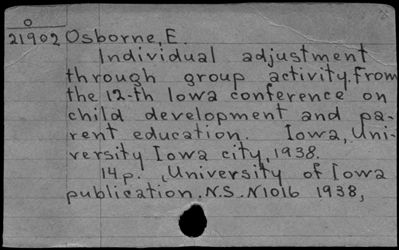 O
21902 Osborne, E.
Individual adjustment
through group activity. From
the 12-th Iowa conference on
child development and pa-
rent education. Iowa, Uni-
versity Iowa city, 1938.
14p. (University of Iowa
publication. N.S. N1016 1938,